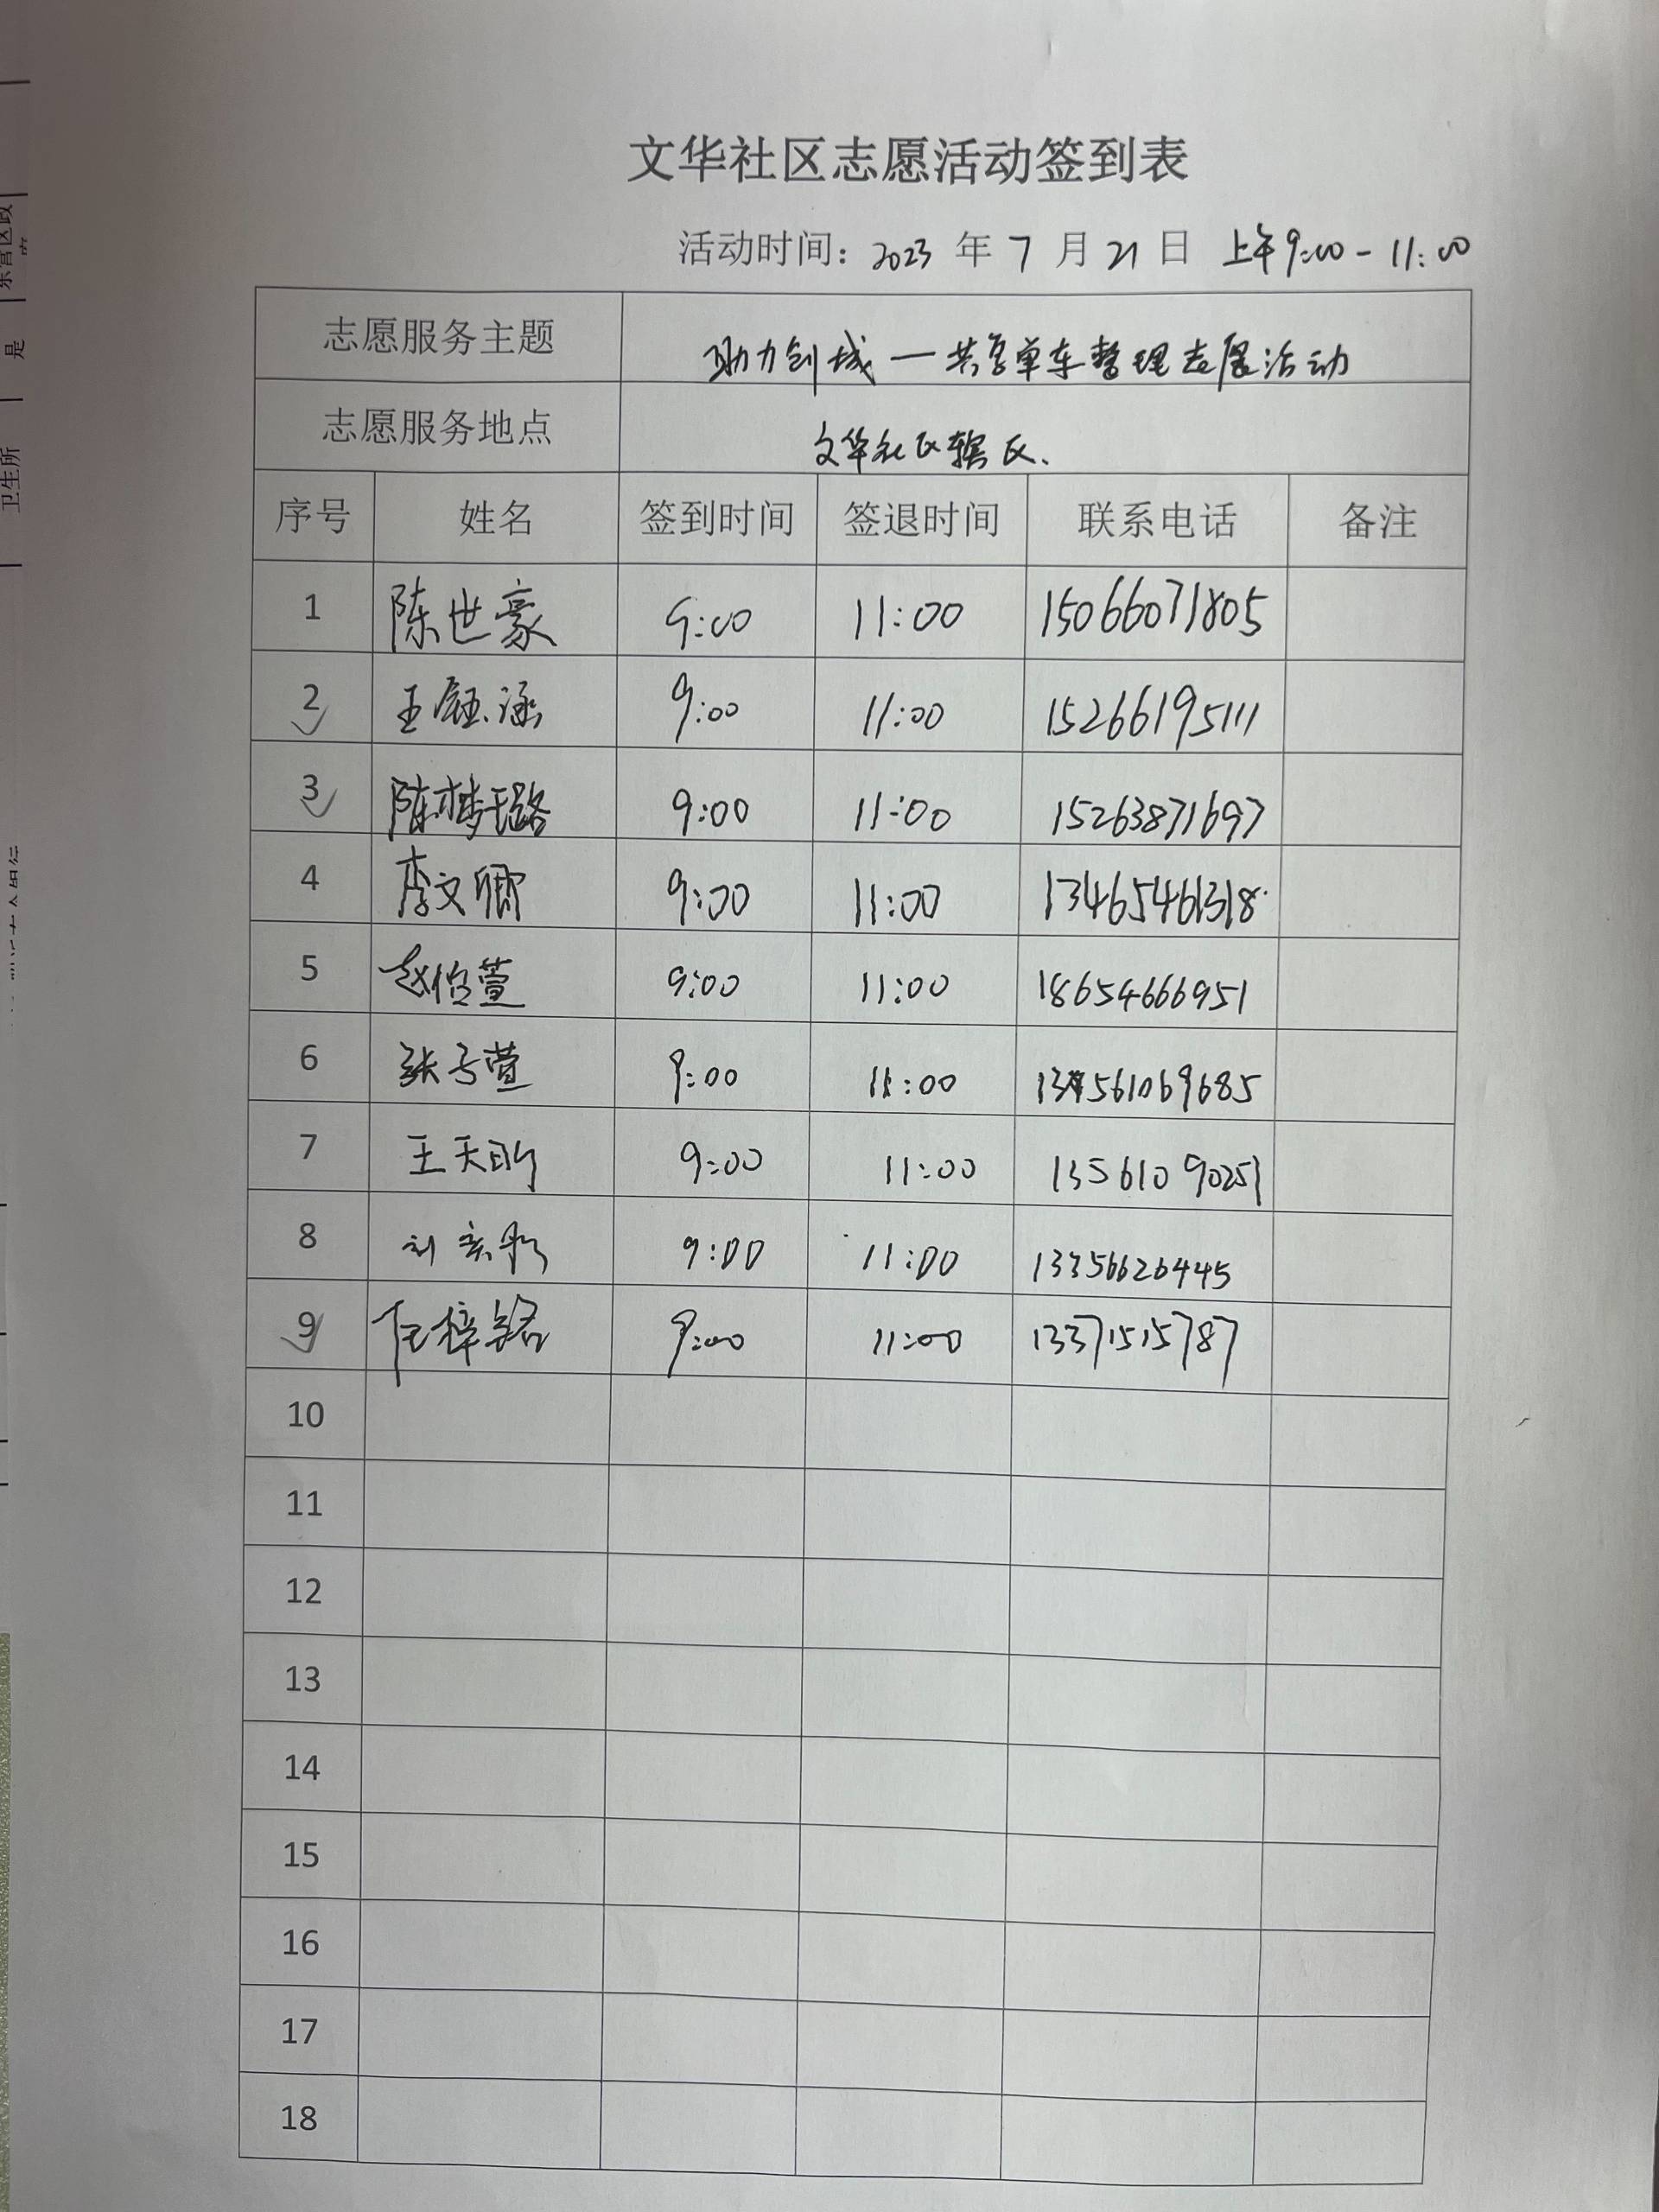 文华社区志愿活动签到表
活动时间：2023 年 7 月 21 日 上午9:00-11:00
志愿服务主题 助力创城—共享单车整理志愿活动
志愿服务地点 文华社区辖区.
序号 姓名 签到时间 签退时间 联系电话 备注
1 陈世豪 9:00 11:00 15066071805
2 王钰涵 9:00 11:00 15266195111
3 陈梦璐 9:00 11:00 15263871697
4 李文卿 9:00 11:00 13465461318
5 赵怡萱 9:00 11:00 18654666951
6 张子萱 9:00 11:00 13561069685
7 王天昕 9:00 11:00 13561090251
8 刘 9:00 11:00 13356626445
9 任梓铭 9:00 11:00 13371515787
10
11
12
13
14
15
16
17
18
东营区政
是
卫生所